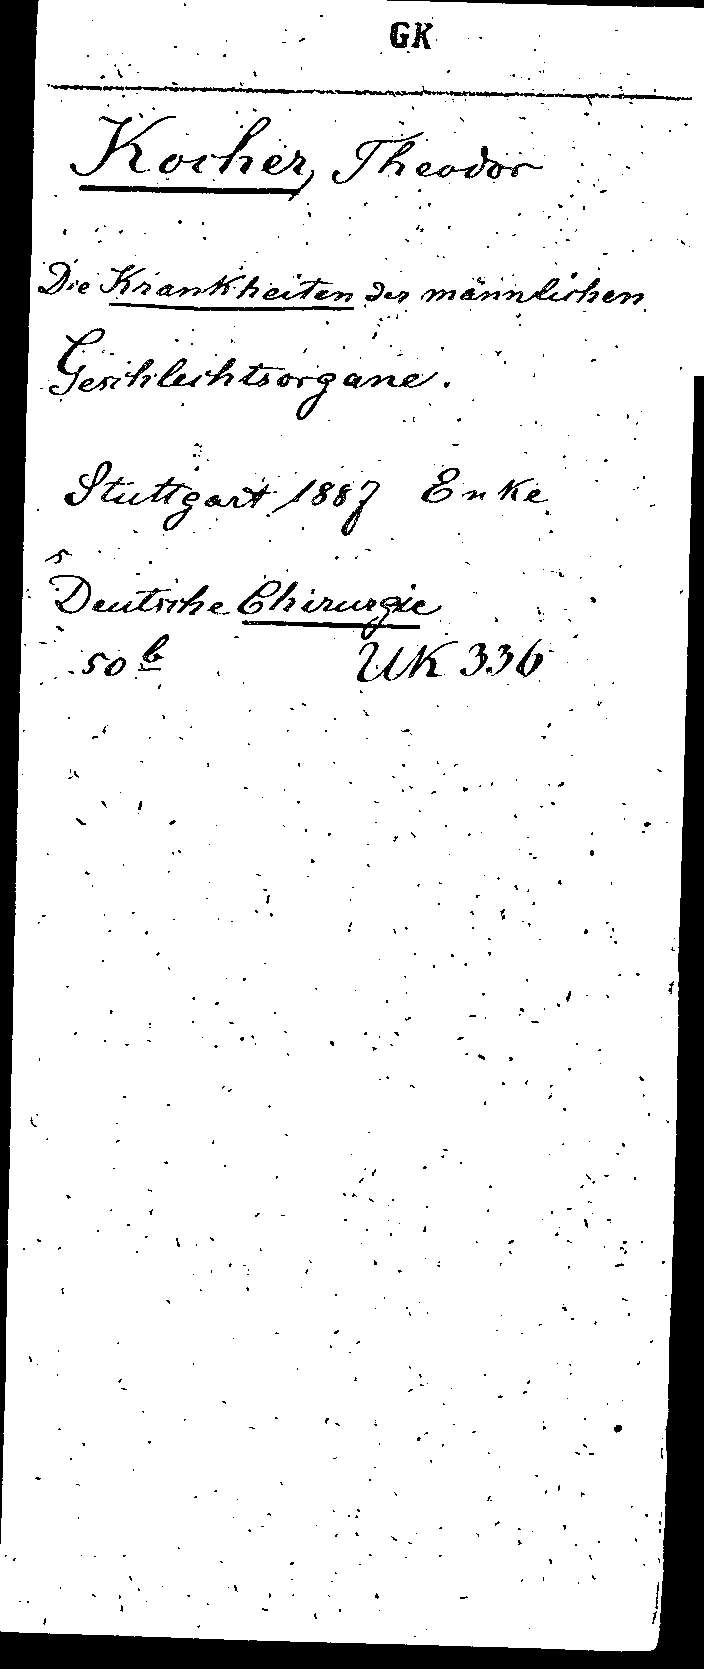 GK
Kocher, Theodor
Die Krankheiten der männlichen
Geschlechtsorgane.
Stuttgart 1887 Enke
s
Deutsche Chirurgie
50b UK 336